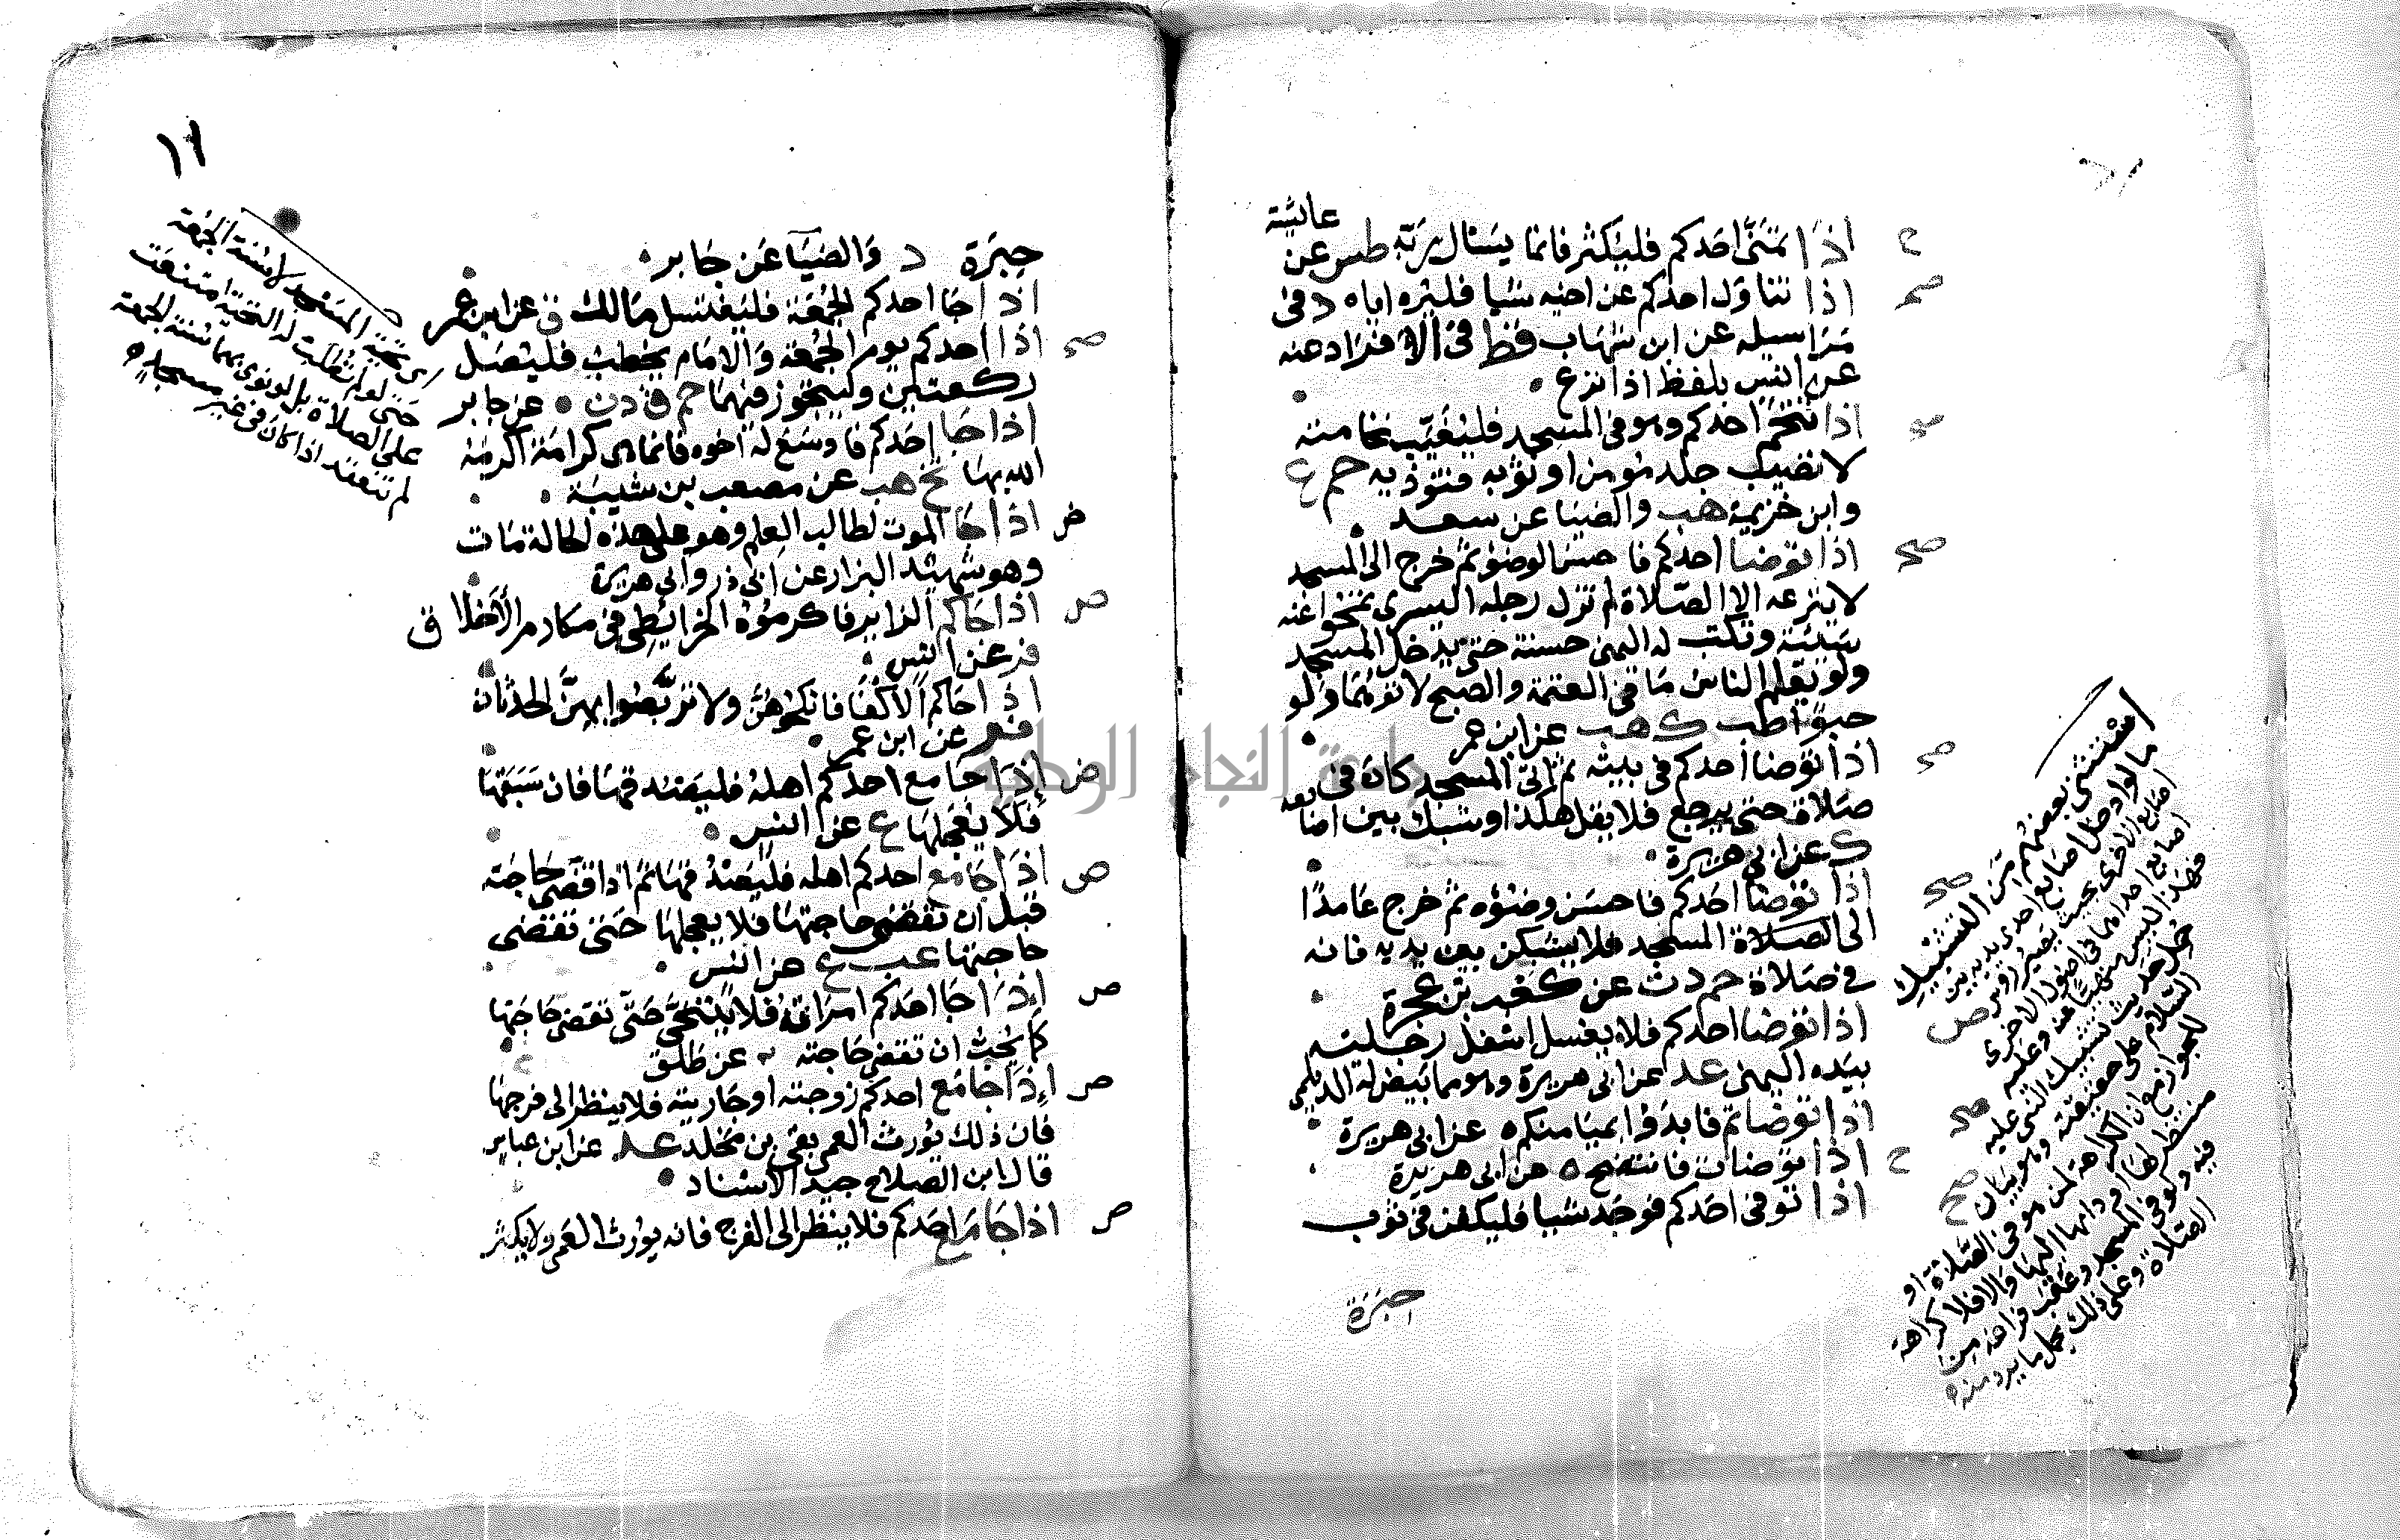 عائشة
اذا تمنى احدكم فليكثر فانما يسال ربه طس عن
اذا تناول احدكم عن اخيه شيا فليره اياه د في
مراسيله عن ابن شهاب قط في الافراد عنه
عن انس بلفظ اذا نزع
اذا تنخم احدكم وهو في المسجد فليغيب نخامته
لا تصيب جلد مومن او ثوبه فتوذيه حم ع
وابن خزيمة هب والضيا عن سعد
اذا توضا احدكم فاحسن الوضو ثم خرج الى المسجد
لا ينزعه الا الصلاة لم تزل رجله اليسرى تمحوا عنه
سيئة وتكتب له اليمنى حسنة حتى يدخل المسجد
ولو يعلم الناس ما في العتمة والصبح لاتوهما ولو
حبوا طب ك هب عن ابن عمر
اذا توضا احدكم في بيته ثم اتى المسجد كان في
صلاة حتى يرجع فلا يقل هكذا وشبك بين اصابعه
ك عن ابي هريرة
اذا توضا احدكم فاحسن وضوه ثم خرج عامدا
الى الصلاة المسجد فلا يشبكن بين يديه فانه
في صلاة حم د ت عن كعب بن عجرة
اذا توضا احدكم فلا يغسل اسفل رجليه
بيده اليمنى عد عن ابي هريرة وهو مما بيض له الديلمي
اذا توضاتم فابدؤا بميامنكم ه عن ابي هريرة
اذا توضات فانتضح ه عن ابي هريرة
اذا توفي احدكم فوجد شيا فليكفن في ثوب
حبرة
استثنى بعضهم من التشبيك
ما لو ادخل اصابع احدى يديه بين
اصابع الاخرى بحيث يصير رؤس
اصابع احداهما في اصول الاخرى
فهذا ليس منهيا عنه وعليه
حمل حديث تشبيك النبي عليه
السلام على حقيقته وهو بيان
للجواز وان الكراهة لمن هو في الصلاة او
منتظرها او ذاهبا اليها والا فلا كراهة
فيه ولو في المسجد وعقب فراغه من
الصلاة وعلى ذلك يحمل ما يرد منه
١٦
حبرة د والضيا عن جابر
اذا جا احدكم الجمعة فليغتسل مالك ق ن عن ابن عمر
اذا جا احدكم يوم الجمعة والامام يخطب فليصل
ركعتين وليتجوز فيهما حم ق د ن ه عن جابر
اذا جا احدكم فاوسع له اخوه فانما هي كرامة اكرمه
الله بها تخ هب عن مصعب بن شيبة
اذا جا الموت لطالب العلم وهو على هذه الحالة مات
وهو شهيد البزار عن ابي ذر وابي هريرة
اذا جاكم الزاير فاكرموه الخرائطي في مكارم الاخلاق
فر عن انس
اذا جاكم الاكفا فانكحوهن ولا تربصوا بهن الحدثان
فر عن ابن عمر
اذا جامع احدكم اهله فليصدقها فان سبقها
فلا يعجلها ع عن انس
اذا جامع احدكم اهله فليصدقها ثم اذا قضى حاجته
قبل ان تقضي حاجتها فلا يعجلها حتى تقضي
حاجتها عب ع عن انس
اذا جا احدكم امراته فلا يتنحى حتى تقضي حاجتها
كما يحب ان تقضى حاجته عن طلق
اذا جامع احدكم زوجته او جاريته فلا ينظر الى فرجها
فان ذلك يورث العمى بقي بن مخلد عد عن ابن عباس
قال ابن الصلاح جيد الاسناد
اذا جامع احدكم فلا ينظر الى الفرج فانه يورث العمى ولا يكثر
تحية المسجد لا سنة الجمعة
حتى لو لم تطلب له التحية امتنعت
على الصلاة بل لو نوى بهما سنة الجمعة
لم تنعقد اذا كان في غير مسجد
جامعة النجاح الوطنية